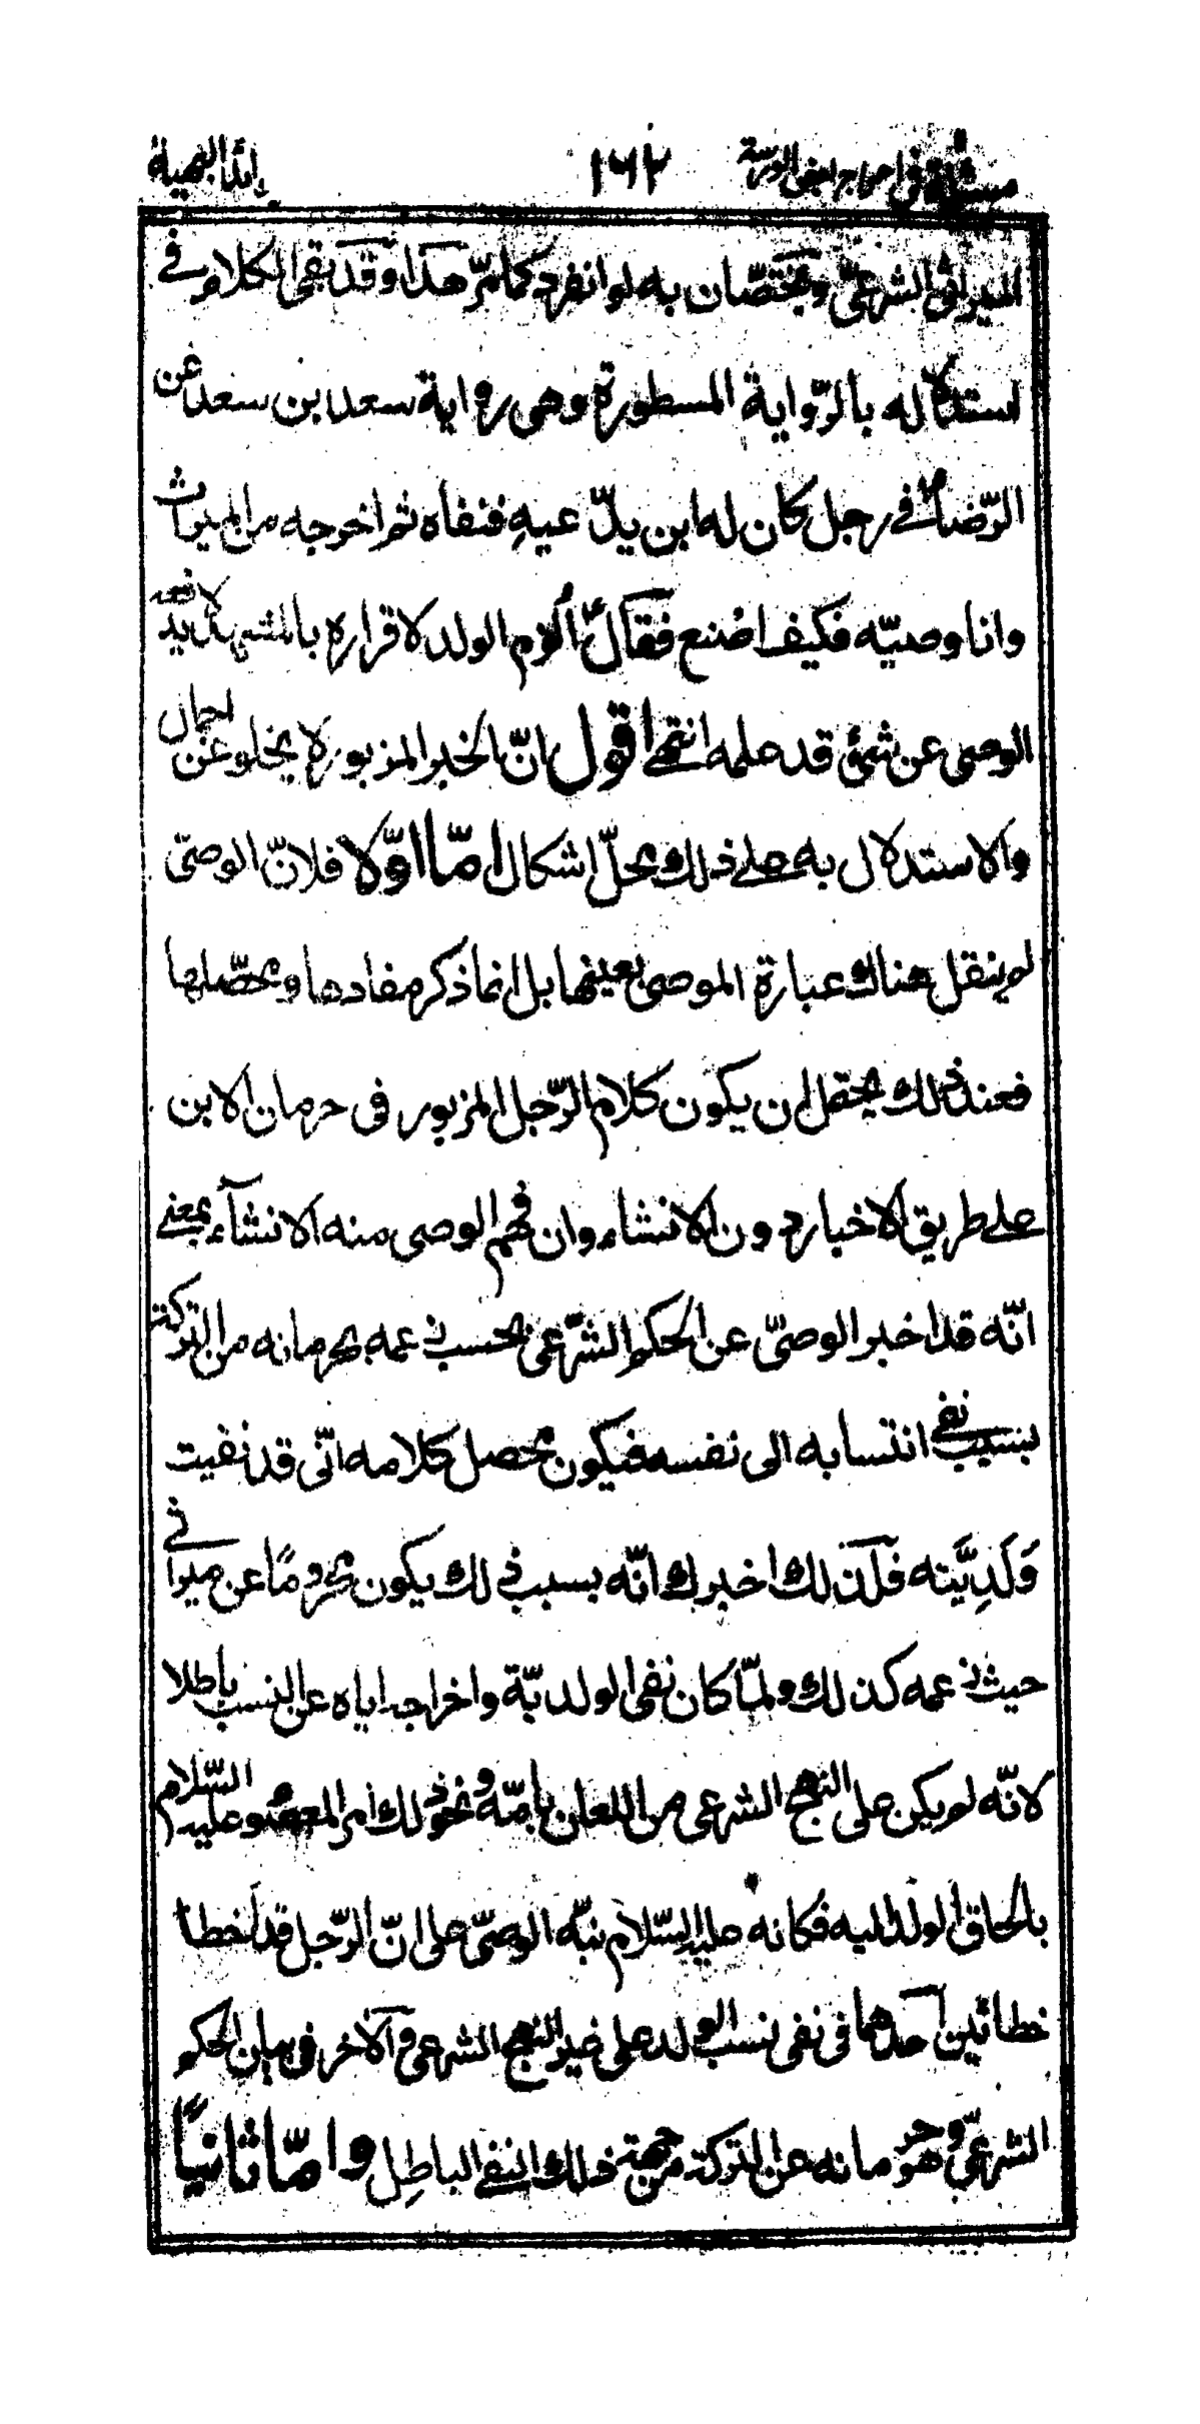 مسئلة فى اخراج بعض الورثة ١٦٢ البهية
الميراث الشرعىّ ويختصّان به لو انفرد كما مرّ هذا وقد بقى الكلام فى
استدلاله بالرّواية المسطورة وهى رواية سعد ابن سعد عن
الرّضاؑ فى رجل كان له ابن يدّعيهِ فنفاه ثم اخرجه من الميراث
وانا وصيّه فكيف اصنع فقالؑ لزم الولد لاقراره بالمشهد لا يدفعه
الوصى عن شئ قد علمه انتهى اقول انّ الخبر المزبور لا يخلو عن اجمال
والاستدلال به على ذلك محلّ اشكال امّا اوّلا فلانّ الوصىّ
لم ينقل هناك عبارة الموصى بعينها بل انما ذكر مفادها ومحصّلها
فعند ذلك يحتمل ان يكون كلام الرّجل المزبور فى حرمان الابن
على طريق الاخبار دون الانشاء وان فهم الوصى منه الانشآء بمعنى
انّه قد اخبر الوصىّ عن الحكم الشّرعى بحسب زعمه بحرمانه من التركة
بسبب نفى انتسابه الى نفسه فيكون محصل كلامه انّى قد نفيت
وَلَدِيَّته فلذلك اخبرك انّه بسبب ذلك يكون محرومًا عن ميراثى
حيث زعمه كذلك ولمّا كان نفى الولديّة واخراجه اياه عن النسب باطلا
لانّه لم يكن على النهج الشرعى من اللعان بامّه ونحو ذلك امر المعصوم عليه السّلام
بالحاق الولد اليه فكانه عليه السّلام نبّه الوصىّ على انّ الرّجل قد اخطا
خطائين احدهما فى نفى نسب الولد على غير النهج الشرعى والآخر فى بيان الحكم
الشرعىّ وهو حرمانه عن التركة من جهة ذلك النفى الباطِل وامّا ثانيًا